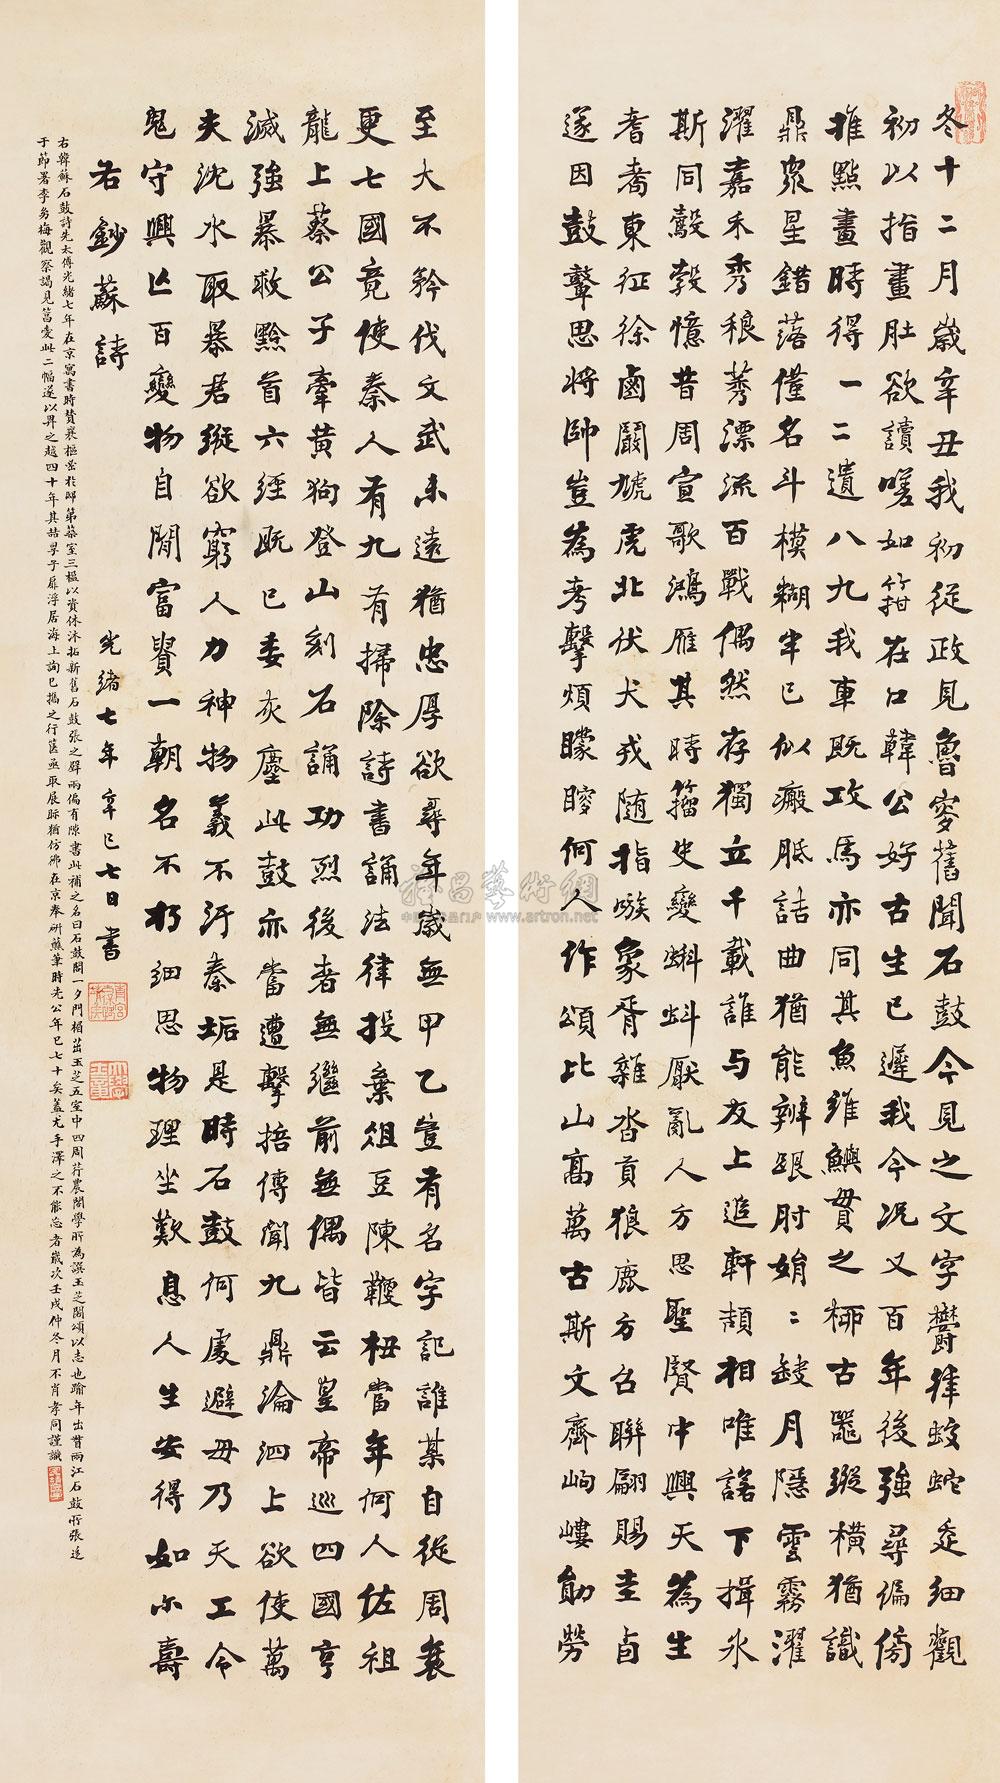 冬十二月歲辛丑我初從政見魯叟舊聞石鼓今見之文字鬱律蛟蛇走細觀
初以指畫肚欲讀嗟如箝在口韓公好古生已遲我今況又百年後強尋偏傍
推點畫時得一二遺八九我車既攻馬亦同其魚維鱮貫之柳古器縱橫猶識
鼎眾星錯落僅名斗模糊半已似瘢胝詰曲猶能辨跟肘娟〻缺月隱雲霧濯
濯嘉禾秀稂莠漂流百戰偶然存獨立千載誰与友上追軒頡相唯諾下揖氷
斯同鷇㝅憶昔周宣歌鴻雁其時籀史變蝌蚪厭亂人方思聖賢中興天為生
耆耇東征徐鹵闞虓虎北伏犬戎随指嗾象胥雜沓貢狼鹿方召聯翩賜圭卣
遂因鼓鼙思將帥豈為考擊煩矇瞍何人作頌比山高萬古斯文齊岣嶁勛勞
至大不矜伐文武未遠猶忠厚欲尋年歲無甲乙豈有名字記誰某自從周衰
更七國竟使秦人有九有掃除詩書誦法律投棄俎豆陳鞭杻當年何人佐祖
龍上蔡公子牽黃狗登山刻石誦功烈後者無繼前無偶皆云皇帝巡四國亨
滅強暴救黔首六經既已委灰塵此鼓亦當遭擊掊傳聞九鼎淪泗上欲使萬
夫沈水取暴君縱欲窮人力神物義不汙秦垢是時石鼓何處避毋乃天工令
鬼守興亡百變物自閒富貴一朝名不朽細思物理坐歎息人生安得如尔壽
右鈔蘇詩
光緒七年辛巳七日書
右韓蘇石鼓詩先太傅光緒七年在京寓書時贊襄樞密於邸第築室三楹以資休沐拓新舊石鼓張之壁兩偏有隙書此補之名曰石鼓閣一夕門楣茁玉芝五室中四周荇農閣學所為譔玉芝閣頌以志也踰年出督兩江石鼓所張迄
于節署李勉梅觀察謁見篤愛此二幅遂以畀之越四十年其喆孚子扉浮居海上詢已攜之行篋亟取展眎猶仿佛在京奉研蘸筆時先公年已七十矣蓋尤手澤之不能忘者歲次壬戌仲冬月不肖孝同謹識
择昌藝術網
www.artron.net